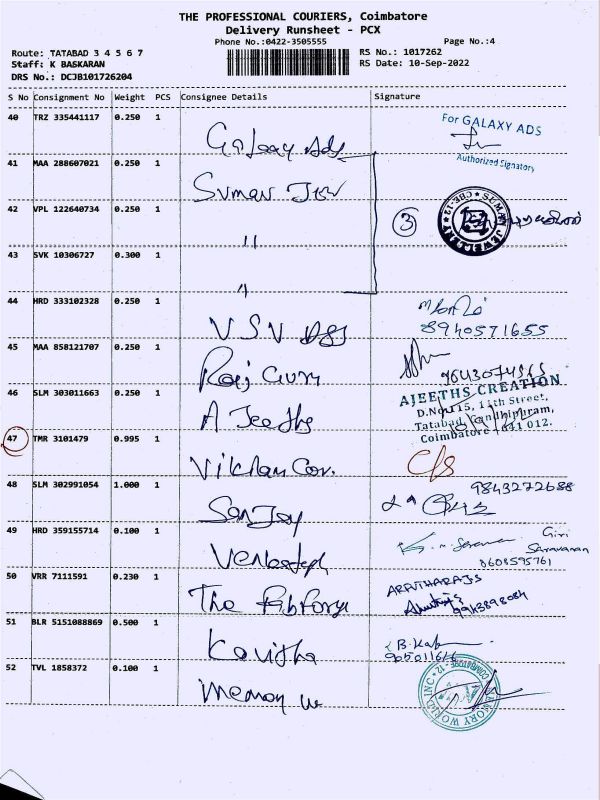 THE PROFESSIONAL COURIERS, Coimbatore
Delivery Runsheet - PCX
Phone No.:0422-3505555
Page No.:4
Route: TATABAD 3 4 5 6 7
Staff: K BASKARAN
DRS No.: DCJB101726204
RS No.: 1017262
RS Date: 10-Sep-2022
S No Consignment No Weight PCS Consignee Details Signature
40 TRZ 335441117 0.250 1 Galaxy Ads
For GALAXY ADS
Authorized Signatory
41 MAA 288607021 0.250 1 Suman
42 VPL 122640734 0.250 1 "
3
SUMAN JEWELLERY
CBE-12
43 SVK 10306727 0.300 1 "
44 HRD 333102328 0.250 1 VSV
8940571655
45 MAA 858121707 0.250 1 Raj Guru
46 SLM 303011663 0.250 1 A Jeeths
AJEETHS CREATION
D.No.115, 11th Street,
Tatabad, Gandhipuram,
Coimbatore - 641 012.
47 TMR 3101479 0.995 1 Vikram
48 SLM 302991054 1.000 1 Sanjay
9843272688
49 HRD 359155714 0.100 1
Giri
Saravanan
8608595761
50 VRR 7111591 0.230 1 The
51 BLR 5151088869 0.500 1 Kavitha
52 TVL 1858372 0.100 1 Memory w
MEMORY WORLD INC
COIMBATORE - 12